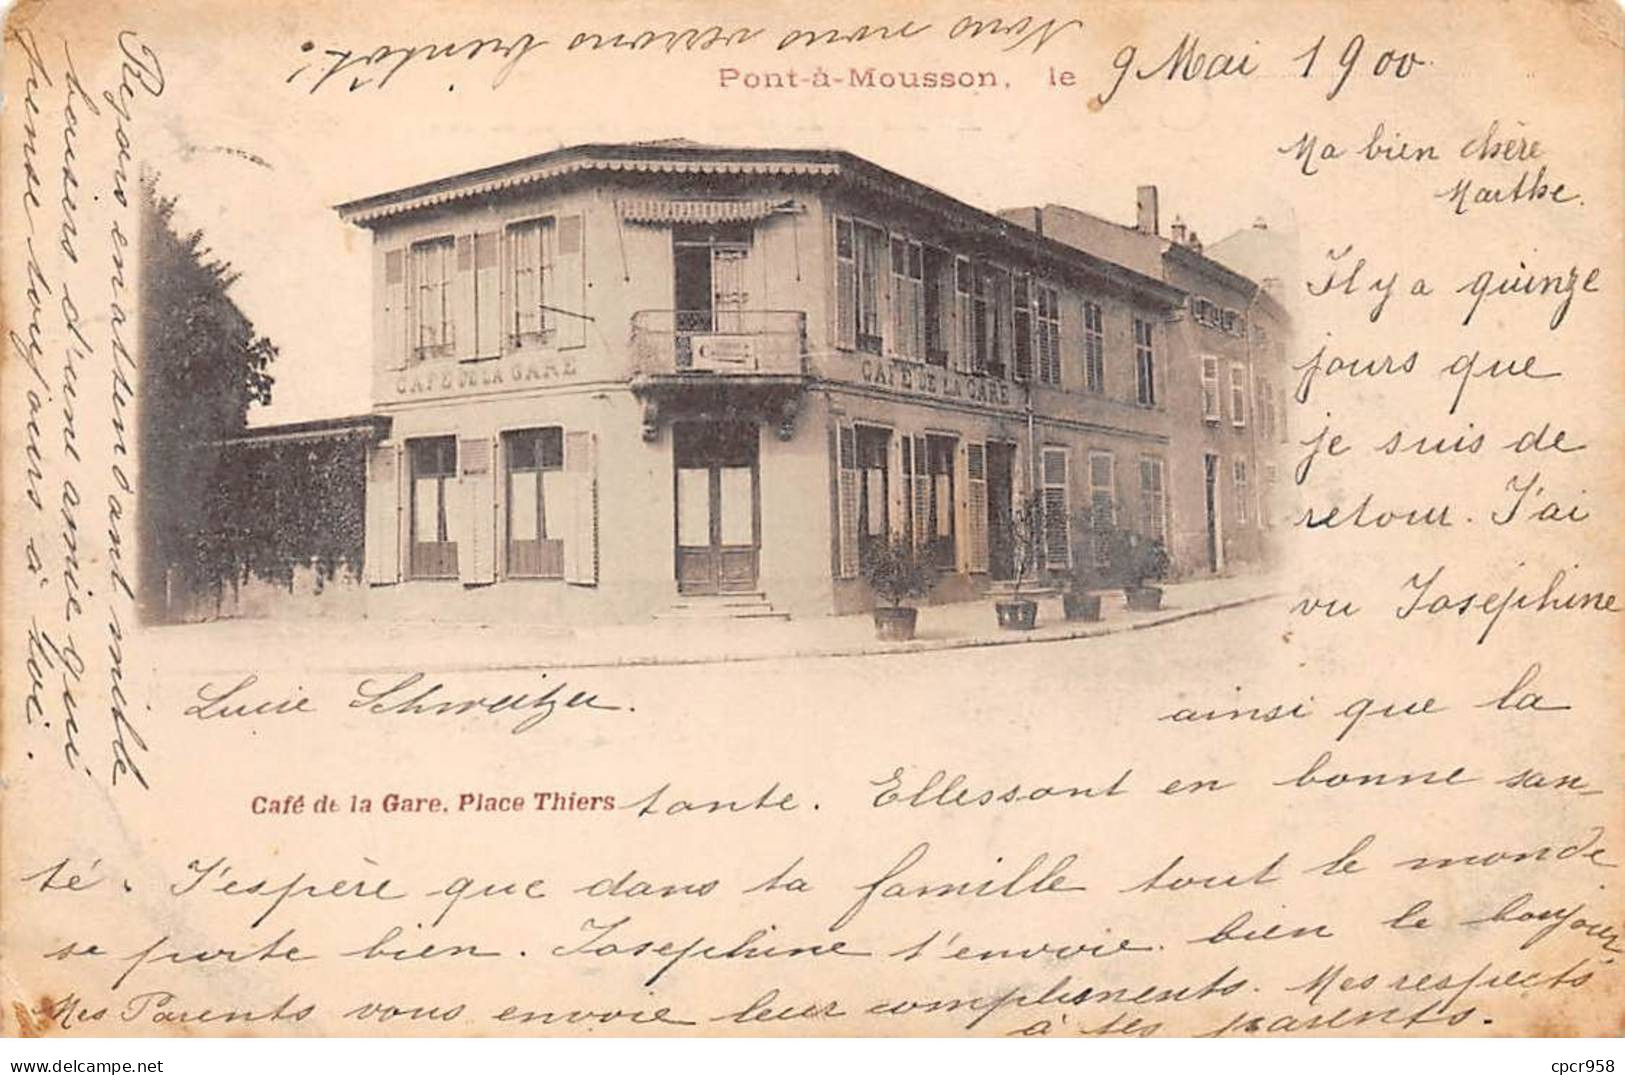 Pont-à-Mousson, le 9 Mai 1900.
Ma bien chère
Marthe.
Il y a quinze
jours que
je suis de
retour. J'ai
vu Joséphine
ainsi que la
tante. Elles sont en bonne san-
té. J'espère que dans ta famille tout le monde
se porte bien. Josephine t'envoie bien le bonjour
Mes Parents vous envoie leur compliments. Mes respects
à tes parents.
Reçois en attendant mille
baisers d'une amie qui
pense toujours à toi.
Nous nous verrons bientôt!
Lucie Schweitzer.
CAFÉ DE LA GARE
CAFÉ DE LA GARE
Café de la Gare, Place Thiers
cpcr958